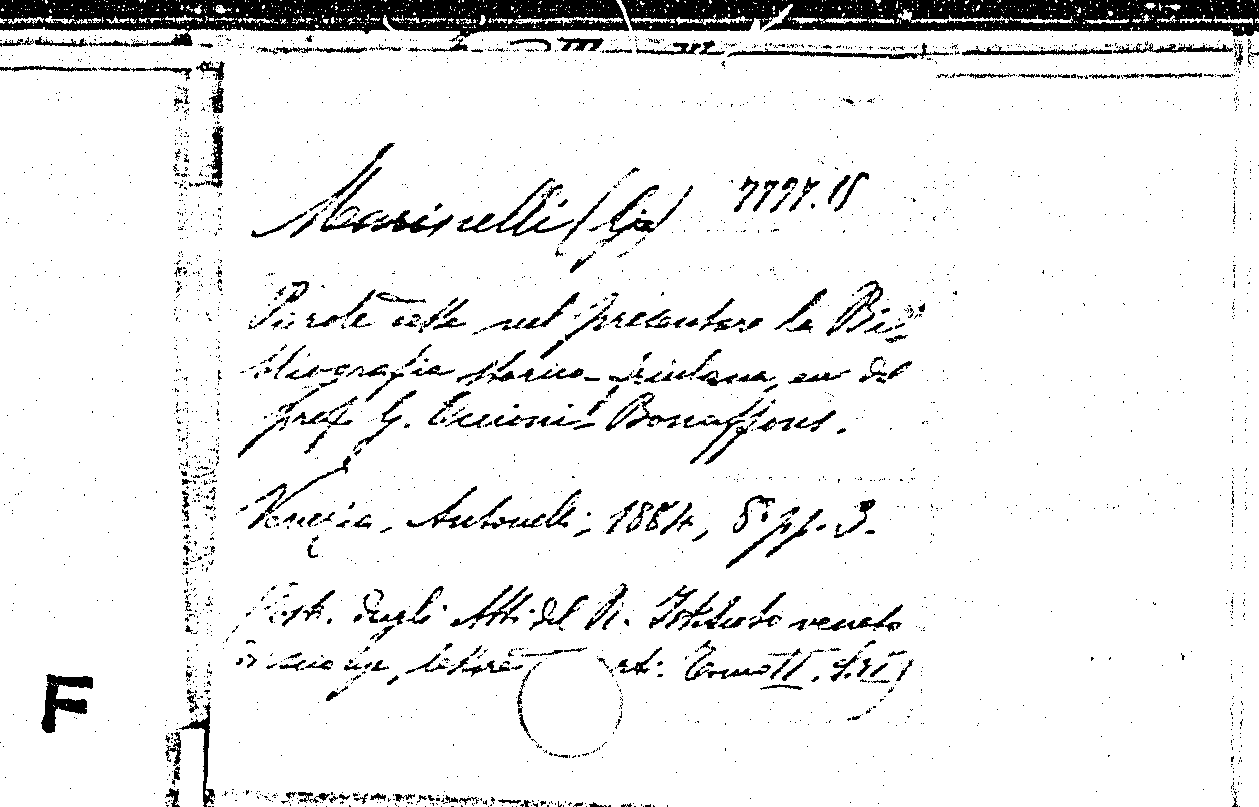 Marinelli (G.) 7797.15
Parole dette nel presentare la Bi-
bliografia storica-friulana, ecc. del
prof. G. Occioni-Bonaffons.
Venezia, Antonelli, 1884, 8° pp. 3.
(Estr. dagli Atti del R. Istituto veneto
di scienze, lettere rti: Tomo II, S. VI)
F